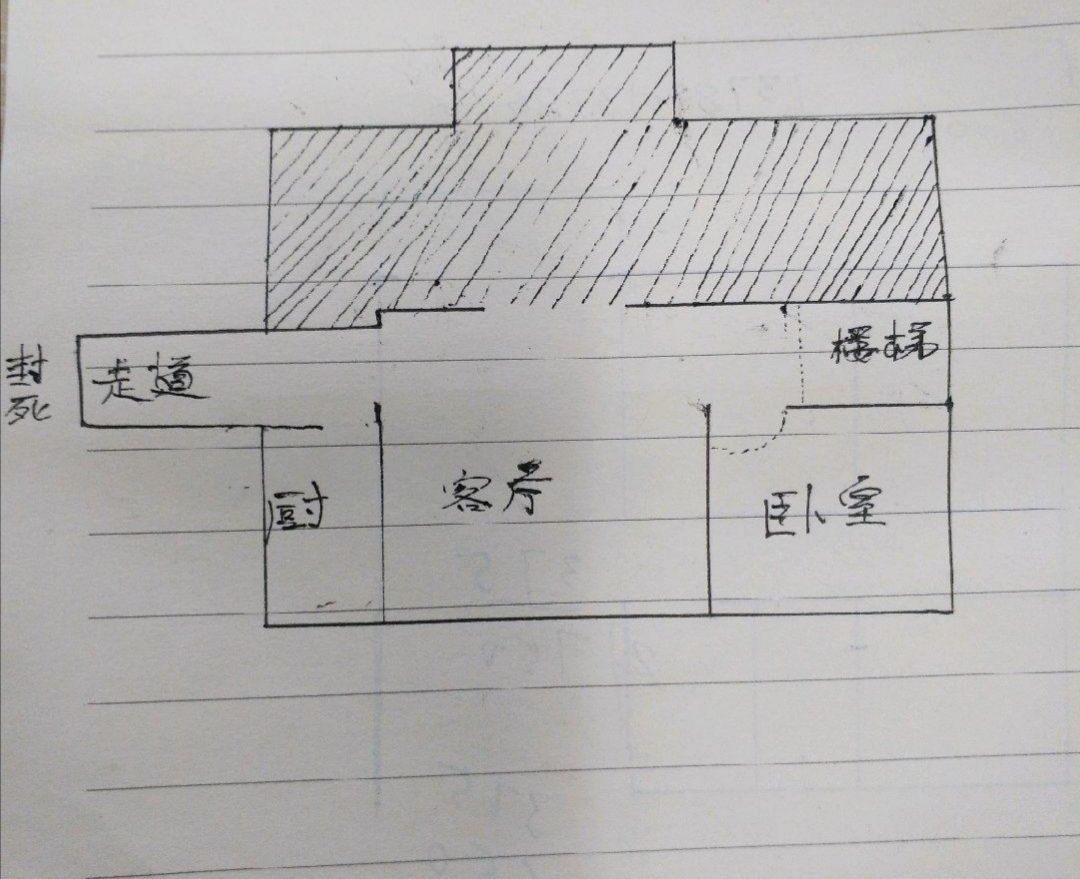 楼梯
封死
走道
客厅
卧室
厨